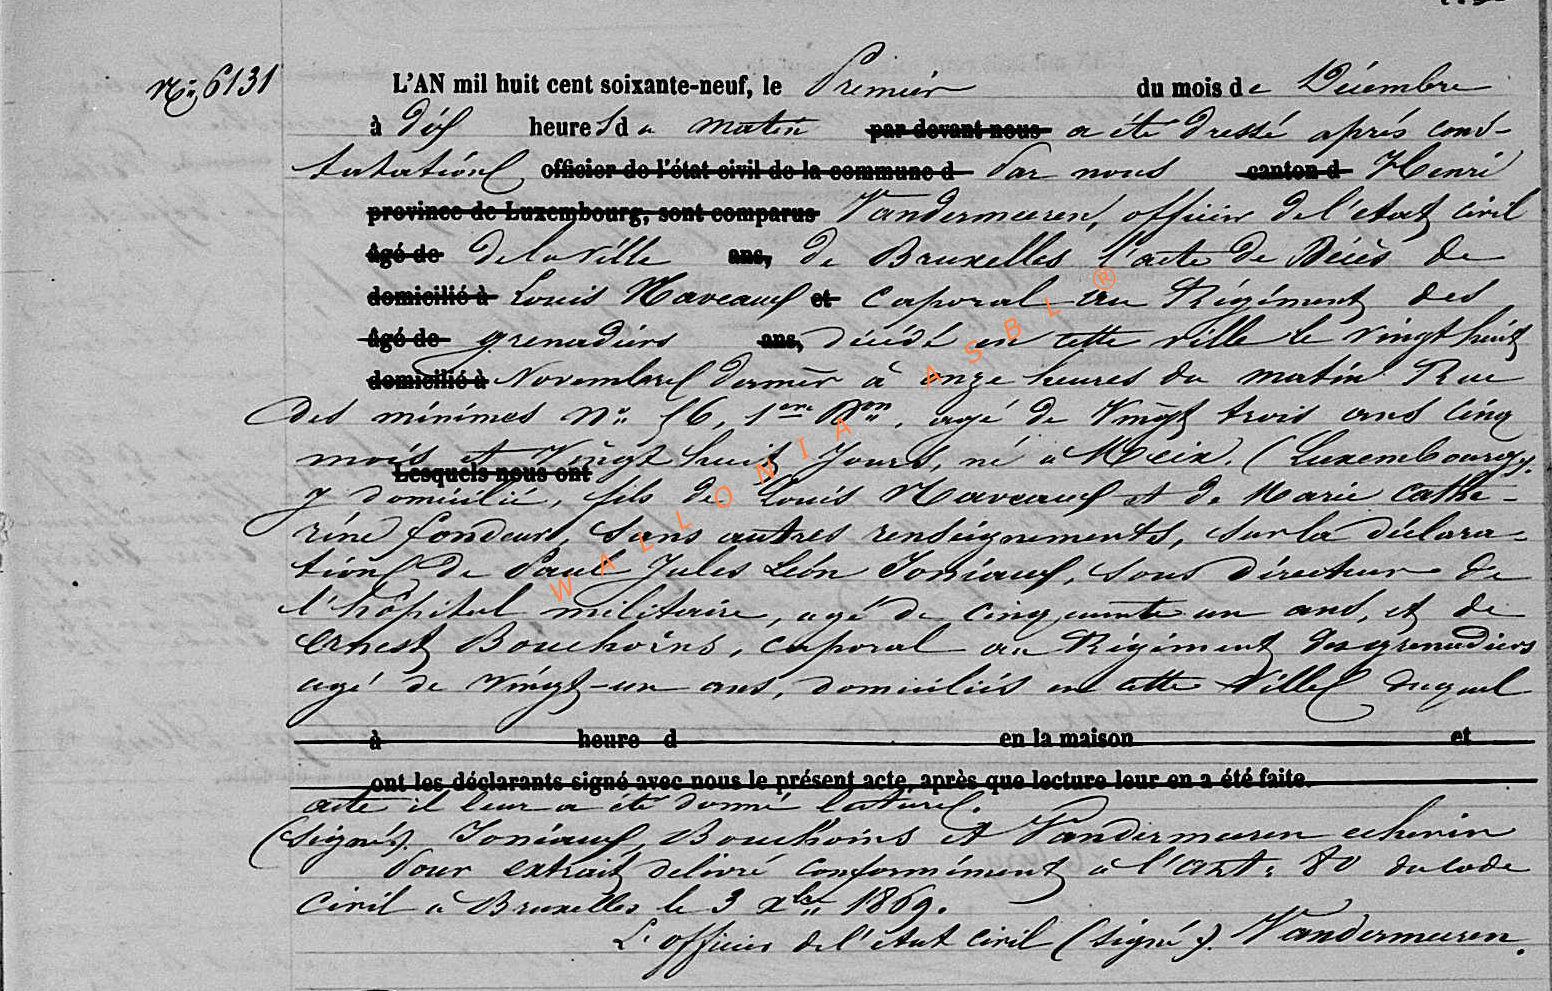 N° 6131
L'AN mil huit cent soixante-neuf, le Premier du mois de Décembre
à dix heures du matin par devant nous a été dressé après cons-
tatation officier de l'état civil de la commune d par nous canton d Henri
province de Luxembourg, sont comparus Vandermeeren, officier de l'etat civil
âgé de de la ville ans, de Bruxelles l'acte de Décès de
domicilié à Louis Maveaux et caporal au Régiment des
âgé de grenadiers ans, décédé en cette ville le vingt huit
domicilié à Novembre dernier à onze heures du matin Rue
des minimes N° 56, 1ere Don, agé de Vingt trois ans cinq
mois et Vingt huit Jours, né à Meix. (Luxembourg).
Lesquels nous ont
y domicilié, fils de Louis Maveaux et de Marie Cathe-
rine fondeur, sans autres renseignements, sur la déclara-
tion de Paul Jules Léon Joniaux, sous Directeur de
l'hôpital militaire, agé de cinquante un ans, et de
ernest Bouchoins, caporal au Régiment des grenadiers
agé de Vingt-un ans, domiciliés en cette Ville duquel
à heure d en la maison et
ont les déclarants signé avec nous le présent acte, après que lecture leur en a été faite.
acte il leur a été donné lecture.
(Signés). Joniaux, Bouchoins et Vandermeeren echevin
Pour extrait delivré conformément à l'art. 80 du code
Civil à Bruxelles le 3 xbre 1869.
L'officier de l'état civil (signé). Vandermeeren.
WALLONIA ASBL ®